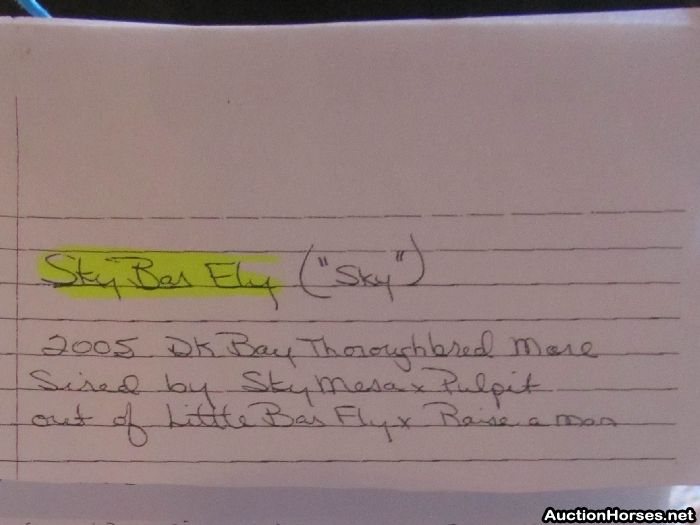 Sky Bar Fly ("Sky")
2005 DK Bay Thoroughbred Mare
Sired by Sky Mesa x Pulpit
out of Little Bar Fly x Raise a man
AuctionHorses.net